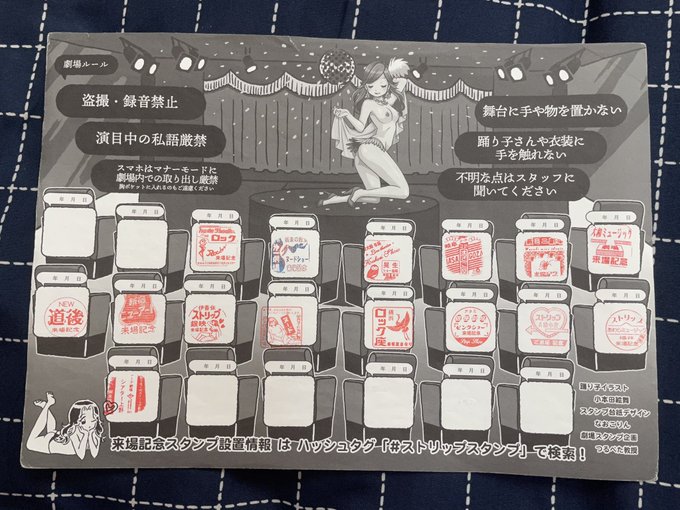 劇場ルール
盗撮・録音禁止
演目中の私語厳禁
スマホはマナーモードに
劇場内での取り出し厳禁
胸ポケットに入れるのもご遠慮ください
舞台に手や物を置かない
踊り子さんや衣装に
手を触れない
不明な点はスタッフに
聞いてください
年 月 日
年 月 日
年 月 日
年 月 日
年 月 日
年 月 日
年 月 日
年 月 日
ロック
来場記念
ヌードショー
大和ミュージック
劇場
来場記念
年 月 日
年 月 日
年 月 日
年 月 日
年 月 日
年 月 日
年 月 日
年 月 日
NEW
道後
来場記念
新宿
ニューアート
来場記念
伊香保
ストリップ
銀映
来場記念
横浜
ロック
座
ストリップ
来場記念
年 月 日
年 月 日
年 月 日
年 月 日
年 月 日
年 月 日
シアター上野
踊り子イラスト
小本田絵舞
スタンプ台紙デザイン
なおこりん
劇場スタンプ企画
つるべた教授
来場記念スタンプ設置情報 は ハッシュタグ「#ストリップスタンプ」で検索!